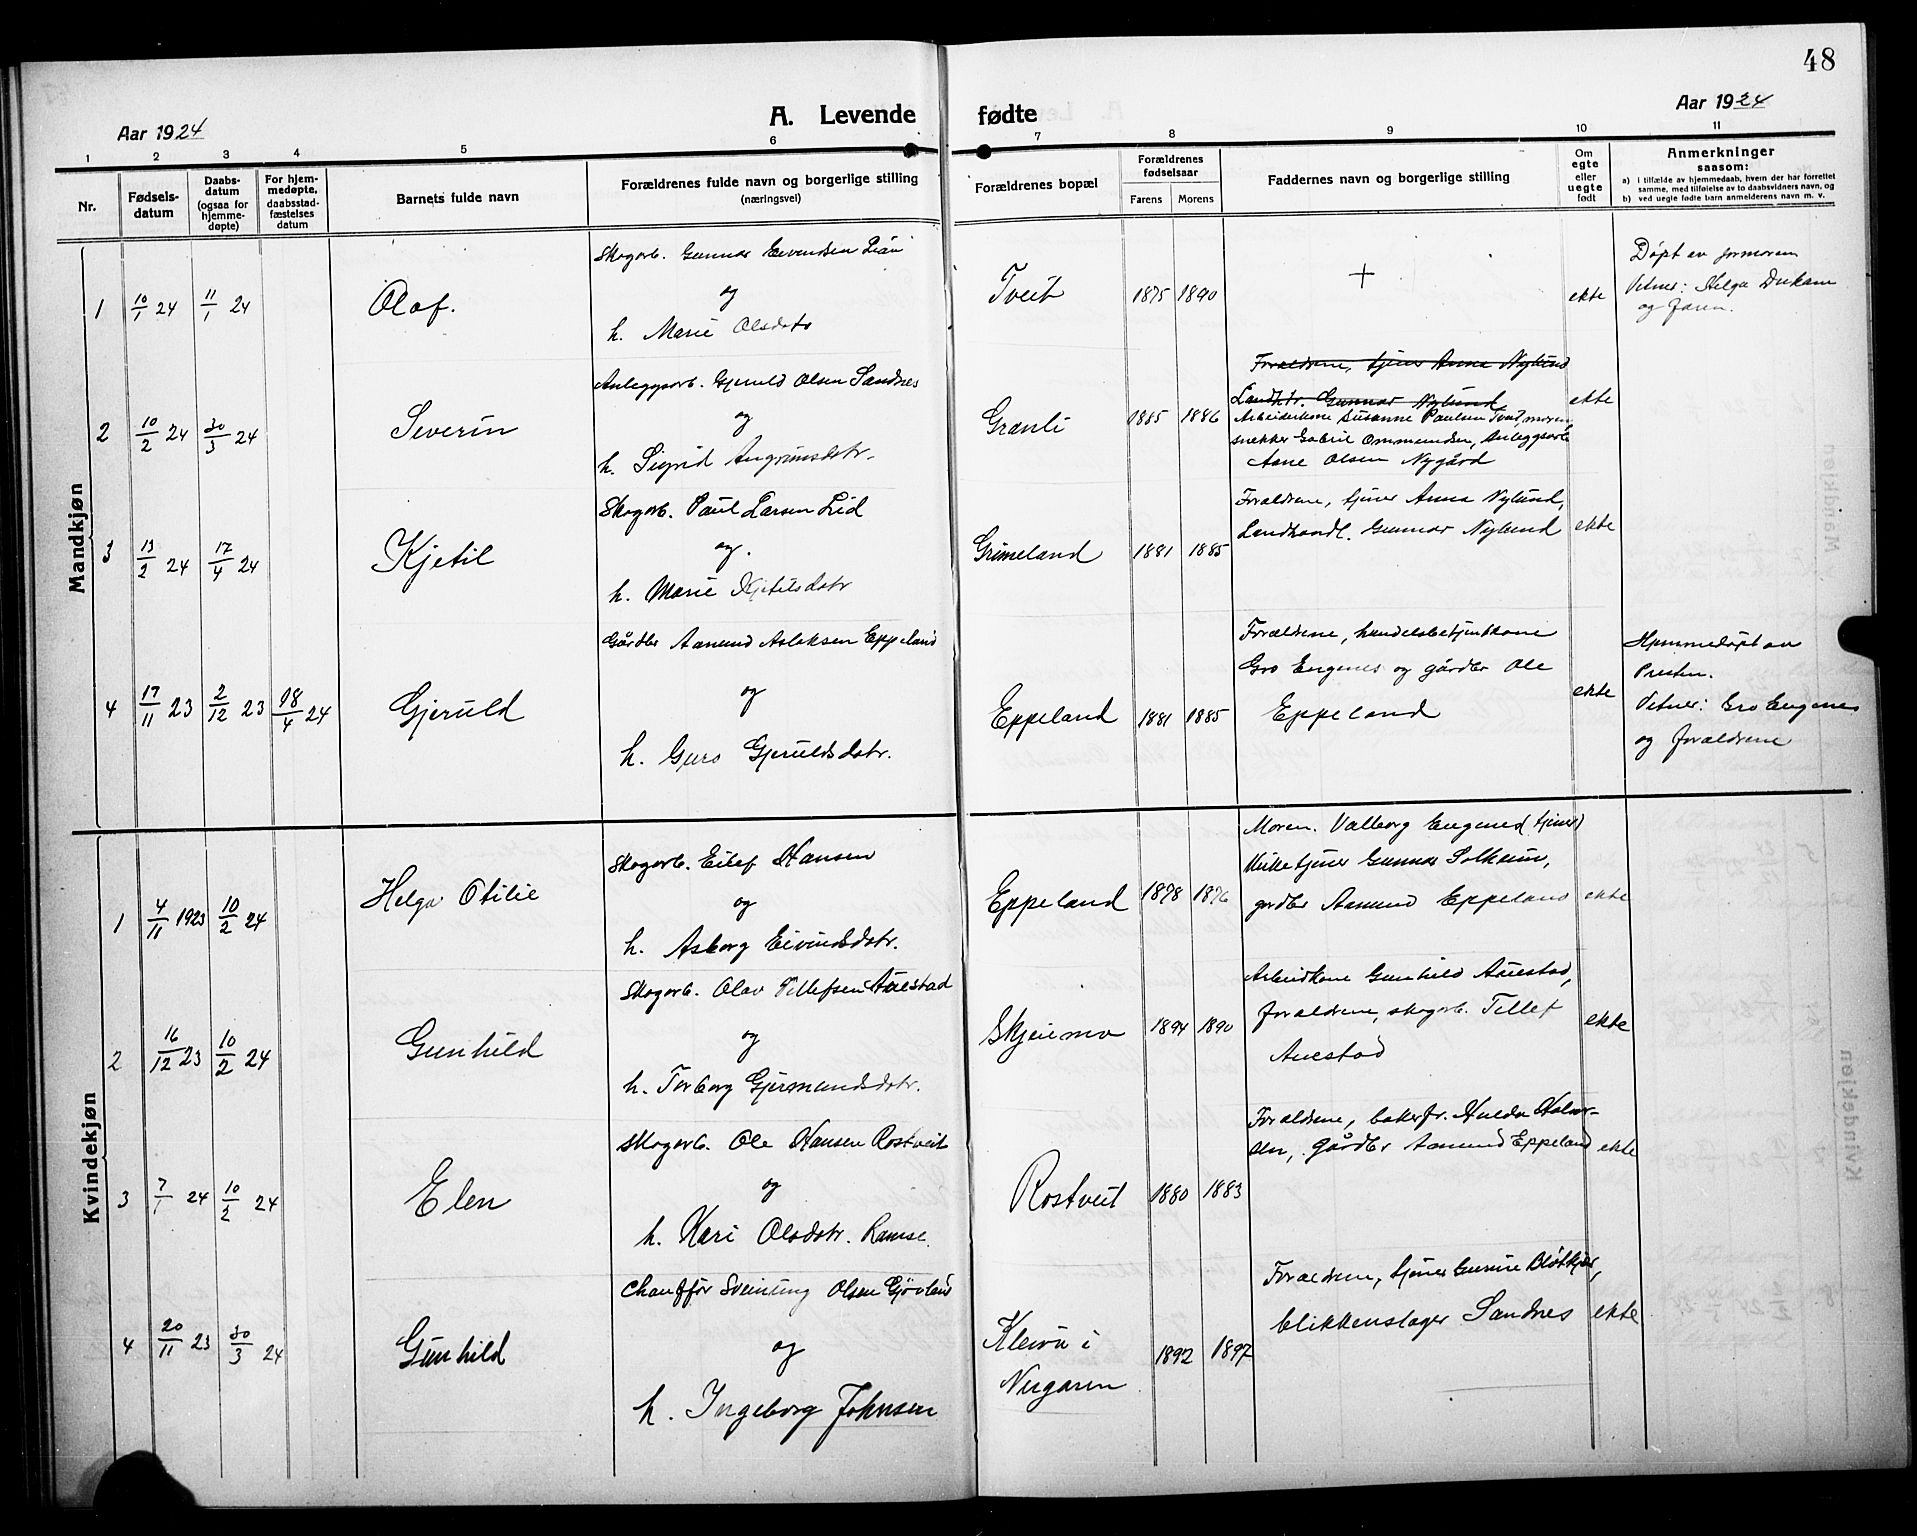 48
Aar 1924
A. Levende fødte
Aar 1924
1 2 3 4 5 6 7 8 9 10 11
Nr.
Fødsels-
datum
Daabs-
datum
(ogsaa for
hjemme-
døpte)
For hjem-
medøpte,
daabsstad-
fæstelses
datum
Barnets fulde navn
Forældrenes fulde navn og borgerlige stilling
(næringsvei)
Forældrenes bopæl
Forældrenes
fødselsaar
Farens Morens
Faddernes navn og borgerlige stilling
Om
egte
eller
uegte
født
Anmerkninger
saasom:
a) i tilfælde av hjemmedaab, hvem der har forrettet
samme, med tilføielse av to daabsvidners navn, og
b) ved uegte fødte barn anmelderens navn m. v.
Mandkjøn
1 10/1 24 11/1 24
Olaf.
Skogarb. Gunnar Eivindsen Lian
og
h. Marie Olsdatr
Tveit
1875 1890
+
ekte
Døpt av jormoren
Vitner: Helga
og faren.
2 10/2 24 30/3 24
Severin
Anleggsarb. Gjeruld Olsen Sandnes
og
h. Sigrid Angrimsdatr.
Granli
1885 1886
Forældrene, tjener Anna Nylund
Landh. Gunnar Nylund
Arbeiderkone Susanne Paulsen Tveit, moren,
snekker Gabriel Ommundsen, Anleggsarb.
Aane Olsen Nygård
ekte
3 13/2 24 17/4 24
Kjetil
Skogarb. Paul Larsen Lid
og.
h. Marie Kjetilsdatr
Grimeland
1881 1885
Forældrene, tjener Anna Nylund,
Landhandl. Gunnar Nylund
ekte
4 17/11 23 2/12 23 18/4 24
Gjeruld
Gårdbr Aamund Aslaksen Eppeland
og
h. Guro Gjeruldsdatr.
Eppeland
1881 1885
Forældrene, handelsbetjentkone
Gro Engenes og gårdbr Ole
Eppeland
ekte
Hjemmedøpt av
Presten.
Vitner: Gro Engenes
og forældrene
Kvindekjøn
1 4/11 1923 10/2 24
Helga Otilie
Skogarb. Eilef Hansen
og
h. Asborg Eivindsdatr.
Eppeland
1878 1876
Moren. Valborg (tjener)
tjener Gunnar Solheim,
gardbr Aamund Eppeland
ekte
2 16/12 23 10/2 24
Gunhild
Skogarb. Olav Tellefsen Auestad
og
h. Torborg Gjermundsdatr.
Skjeimo
1894 1890
Arbeidkone Gunhild Auestad,
forældrene, skogarb. Tellef
Auestad
ekte
3 7/1 24 10/2 24
Elen
Skogarb. Ole Hansen Rostveit
og
h. Kari Olsdatr. Ramse.
Rostveit
1880 1883
Forældrene, bakerfr. Hulda Halvor-
sen, gårdbr Aamund Eppeland
ekte
4 20/11 23 30/3 24
Gunhild
Chauffør Sveinung Olsen Gjøvland
og
h. Ingeborg Johnsen
Kleiva i
Nergaren
1892 1897
Forældrene, tjener Gurine Bløtkjær,
blikkenslager Sandnes
ekte